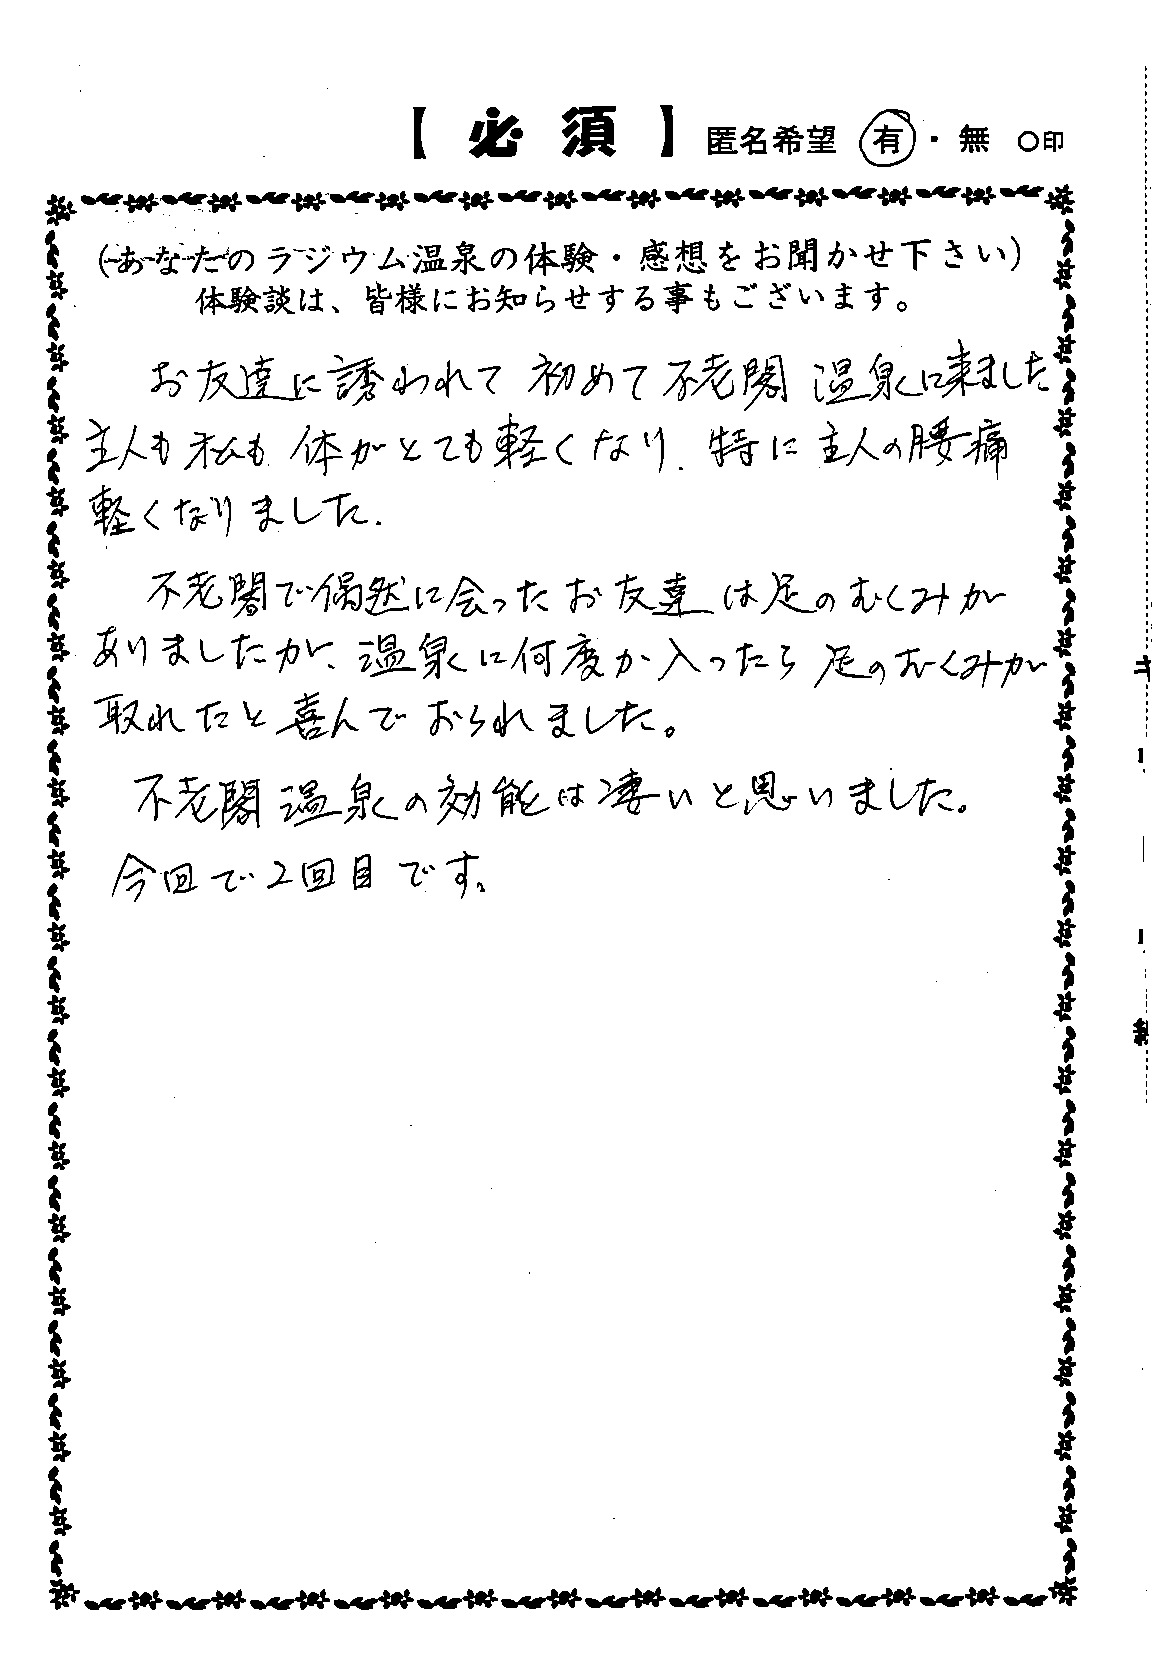 【 必 須 】 匿名希望 有・無 ○印
(あなたのラジウム温泉の体験・感想をお聞かせ下さい)
体験談は、皆様にお知らせする事もございます。
お友達に誘われて 初めて不老閣 温泉に来ました
主人も私も 体がとても軽くなり、特に主人の腰痛
軽くなりました.
不老閣で偶然に会ったお友達は足のむくみが
ありましたが、温泉に何度か入ったら足のむくみが
取れたと喜んでおられました。
不老閣温泉の効能は凄いと思いました。
今回で2回目です。